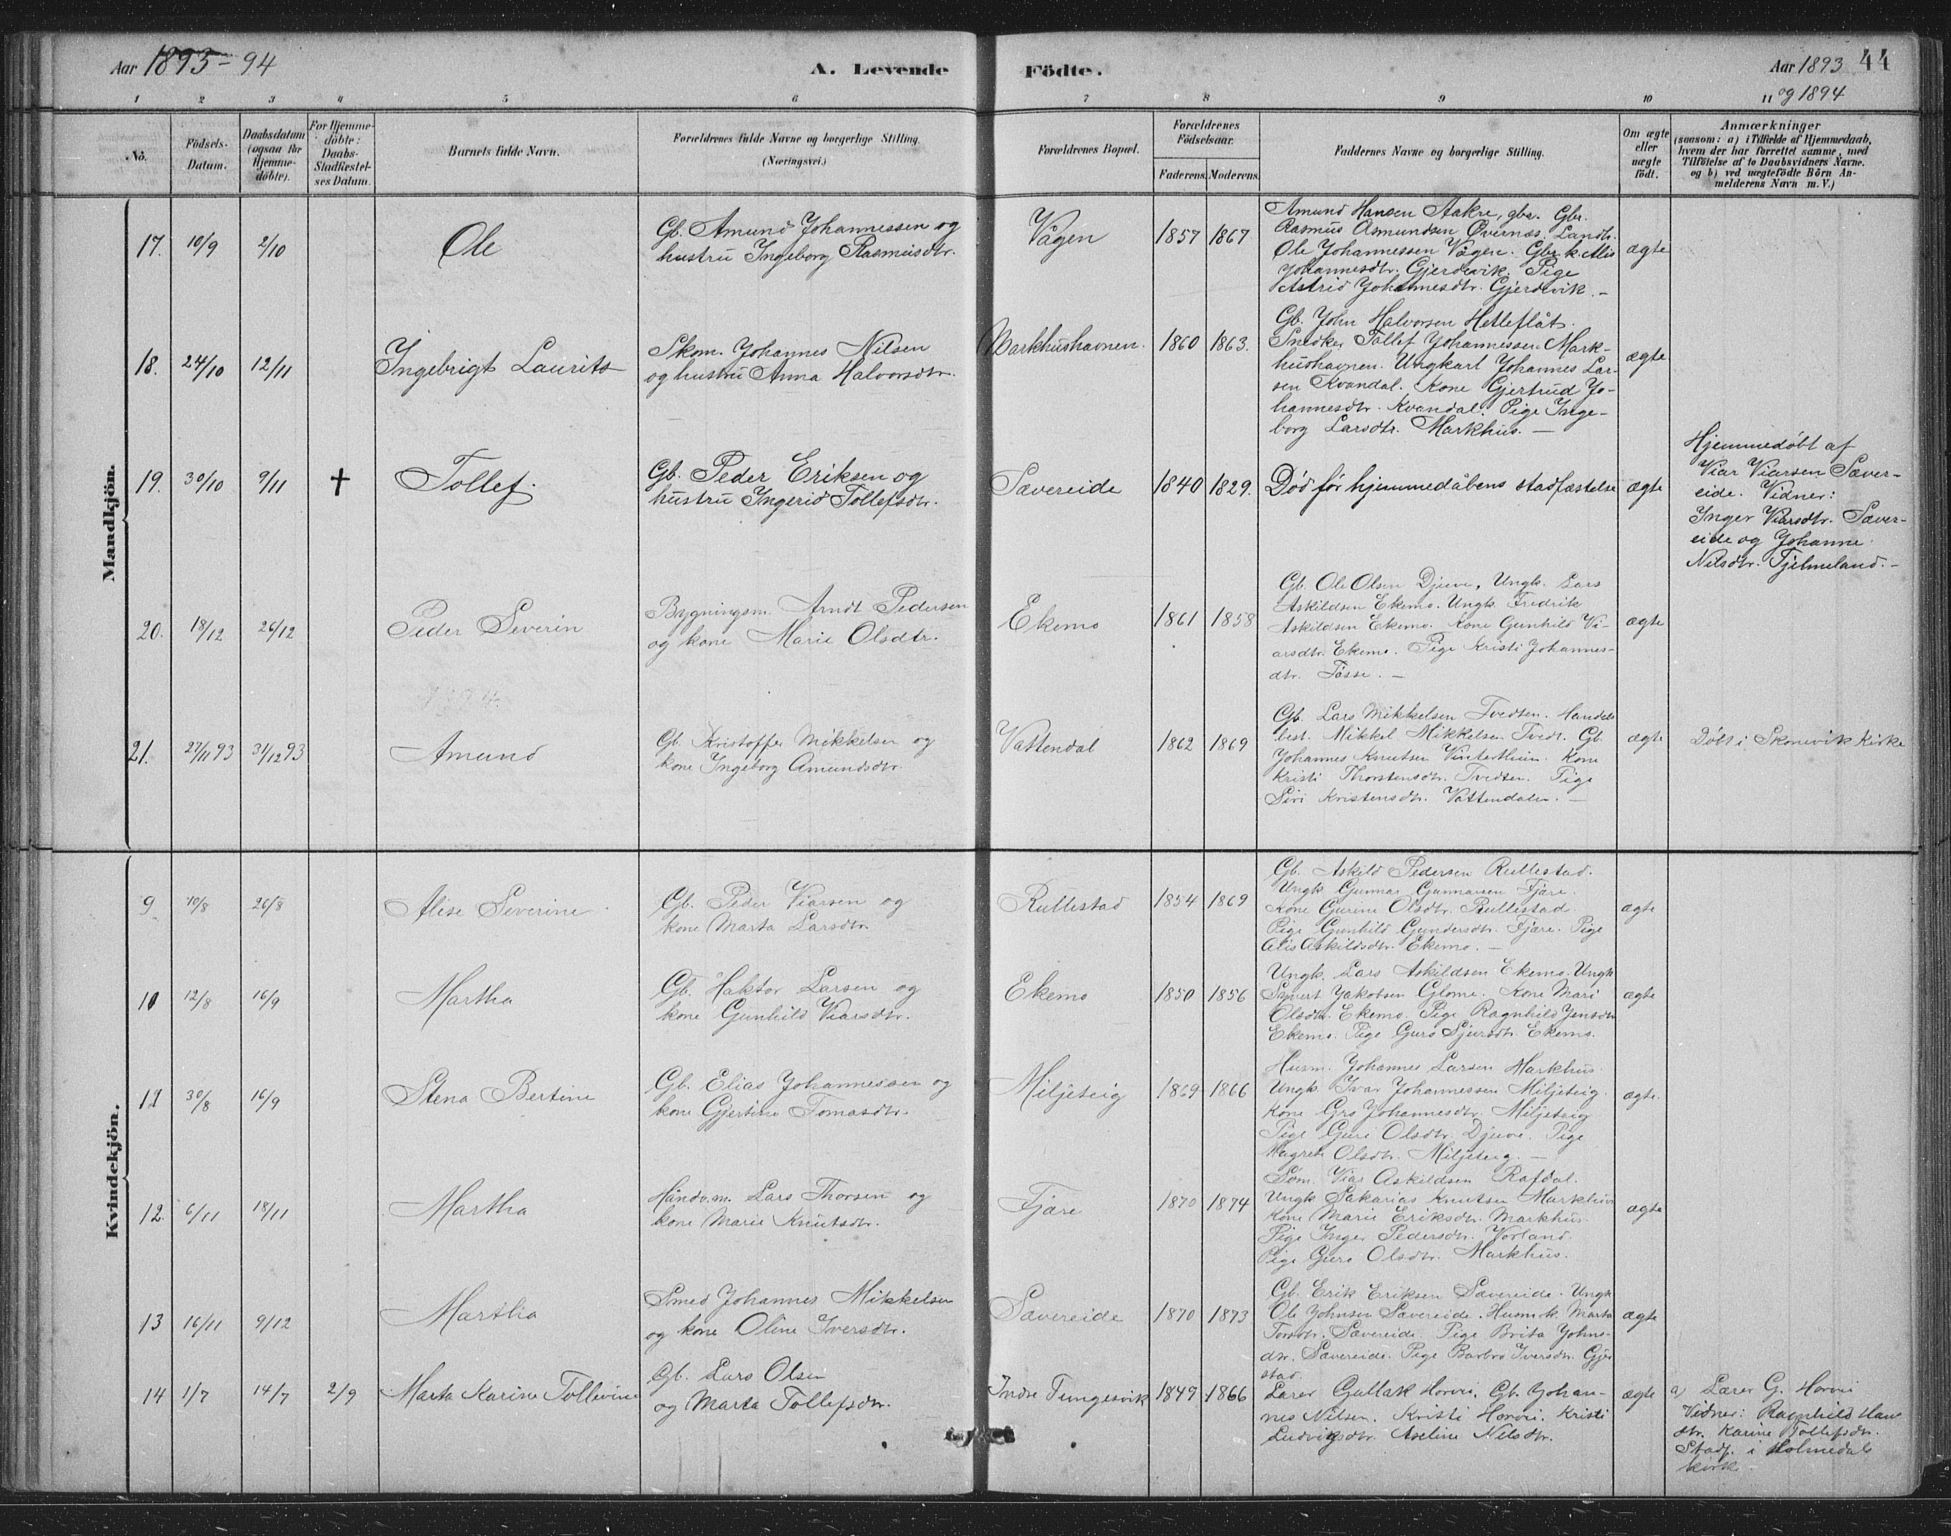 Aar 1893-94
A. Levende Födte.
Aar 1893 44
og 1894
1 2 3 4 5 6 7 8 9 10 11
No.
Födsels-
Datum.
Daabsdatum
(ogsaa for
Hjemme-
døbte).
For Hjemme-
döbte:
Daabs-
Stadfæstel-
ses Datum.
Barnets fulde Navn.
Forældrenes fulde Navne og borgerlige Stilling.
(Næringsvei.)
Forældrenes Bopæl.
Forældrenes
Födselsaar.
Faderens. Moderens.
Faddernes Navne og borgerlige Stilling.
Om ægte
eller
uægte
født.
Anmærkninger
(saasom: a) i Tilfælde af Hjemmedaab,
hvem der har forrettet samme, med
Tilföielse af to Daabsvidners Navne.
og b) ved uægtefödte Börn An-
melderens Navn m. V.)
Mandkjön.
17. 10/9 2/10
Ole
Gb. Amund Johannessen og
hustru Ingeborg Rasmusdtr.
Vågen
1857 1867
Amund Hansen Aakre, gbr. Gbr.
Rasmus Asmundsen Øvernæs. Landh.
Ole Johannessen Vågen. Gbr.k. Alis
Johannesdtr. Gjerdevik. Pige
Astrid Johannesdtr. Gjerdevik. –
ægte
18. 24/10 12/11
Ingebrigt Laurits
Skom. Johannes Nilsen
og hustru Anna Halvorsdtr.
Markhushavnen.
1860 1863.
Gb. John Halvorsen Hetleflåt.
Snedker Tollef Johannessen Mark-
hushavnen. Ungkarl Johannes Lar-
sen Kvandal. Kone Gjertrud Jo-
hannesdtr. Kvandal. Pige Inge-
borg Larsdtr. Markhus. –
ægte
19. 30/10 9/11 †
Tollef.
Gb. Peder Eriksen og
hustru Ingerid Tollefsdtr.
Sævereide
1840 1829.
Død før hjemmedåbens stadfæstelse
ægte
Hjemmedøbt af
Viar Viarsen Sæver-
eide. Vidner:
Inger Viarsdtr. Sæver-
eide og Johanne
Nilsdtr. Fjelmeland. –
20. 18/12 26/12
Peder Severin
Bygningsm. Arndt Pedersen
og kone Marie Olsdtr.
Ekemo
1861 1858
Gb. Ole Olsen Djuve, Ungk. Lars
Askildsen Ekemo. Ungk. Fredrik
Askildsen Ekemo. Kone Gunhild Vi-
arsdtr. Ekemo. Pige Kristi Johannes-
dtr. Fosse. –
ægte
21. 27/11 93 31/12 93
Amund
Gb. Kristoffer Mikkelsen og
kone Ingeborg Amundsdtr.
Vattendal
1862 1869
Gb. Lars Mikkelsen Tvedten. Handels
best. Mikkel Mikkelsen Tvedt. Gb.
Johannes Knutsen Vinterthun. Kone
Kristi Thorstensdtr. Tvedten. Pige
Siri Kristensdtr. Vattendalen. –
ægte
Døbt i Skonevik Kirke
Kvindekjön.
9 10/8 26/8
Alise Severine
Gb. Peder Viarsen og
kone Marta Larsdtr.
Rullestad
1854 1869
Gb. Askild Pedersen Rullestad.
Ungk. Gunnar Gunnarsen Fjære.
Kone Gurine Olsdtr. Rullestad
Pige Gunhild Gundersdtr. Fjære. Pige
Alis Askildsdtr. Ekemo. –
ægte
10 12/8 16/9
Martha
Gb. Haktor Larsen og
kone Gunhild Viarsdtr.
Ekemo
1850 1856
Ungk. Lars Askildsen Ekemo. Ungk
Sjovert Jakobsen Glome. Kone Mari
Olsdtr. Ekemo. Pige Ragnhild Jensdtr
Ekemo. Pige Guro Sjursdtr Ekemo.
ægte
11 30/8 16/9
Stena Bertine
Gb. Elias Johannessen og
kone Gjertine Tomasdtr.
Miljeteig
1869 1866
Husm. Johannes Larsen Markhus.
Ungk. Ivar Johannessen Miljeteig.
Kone Gro Johannesdtr. Miljeteig
Pige Guri Olsdtr. Djuve. Pige
Magrete Olsdtr. Miljeteig. –
ægte.
12. 6/11 18/11
Martha
Håndv.m. Lars Thorsen og
kone Marie Knutsdtr.
Fjære
1870 1874
Søm. Viar Askildsen Rafdal.
Ungk. Sakarias Knutsen Markhus
Kone Marie Eriksdtr. Markhus.
Pige Inger Pedersdtr. Vorland
Pige Guro Olsdtr. Markhus.
ægte
13 16/11 9/12
Martha
Smed Johannes Mikkelsen
og kone Oline Iversdtr.
Sævereide
1870 1873
Gb. Erik Eriksen Sævereide. Ungk
Ole Johnsen Sævereide. Husm.k. Marta
Torsdtr. Sævereide. Pige Brita Johns-
dtr. Sævereide. Pige Barbro Iversdtr. Gjer
stad.
ægte
14 1/7 14/7 2/9
Marta Karine Tollevine
Gb. Lars Olsen
og Marta Tollefsdtr.
Indre Tungesvik
1849 1866
Lærer Gullak Horvei. Gb. Johan-
nes Nilsen. Kristi Horvei. Kristi
Ludvigsdtr. Aseline Nilsdtr.
ægte
a) Lærer G. Horvei
Vidner: Ragnhild Hans
dtr. Karine Tollefsdtr.
Stadf. i Holmedals
kirke